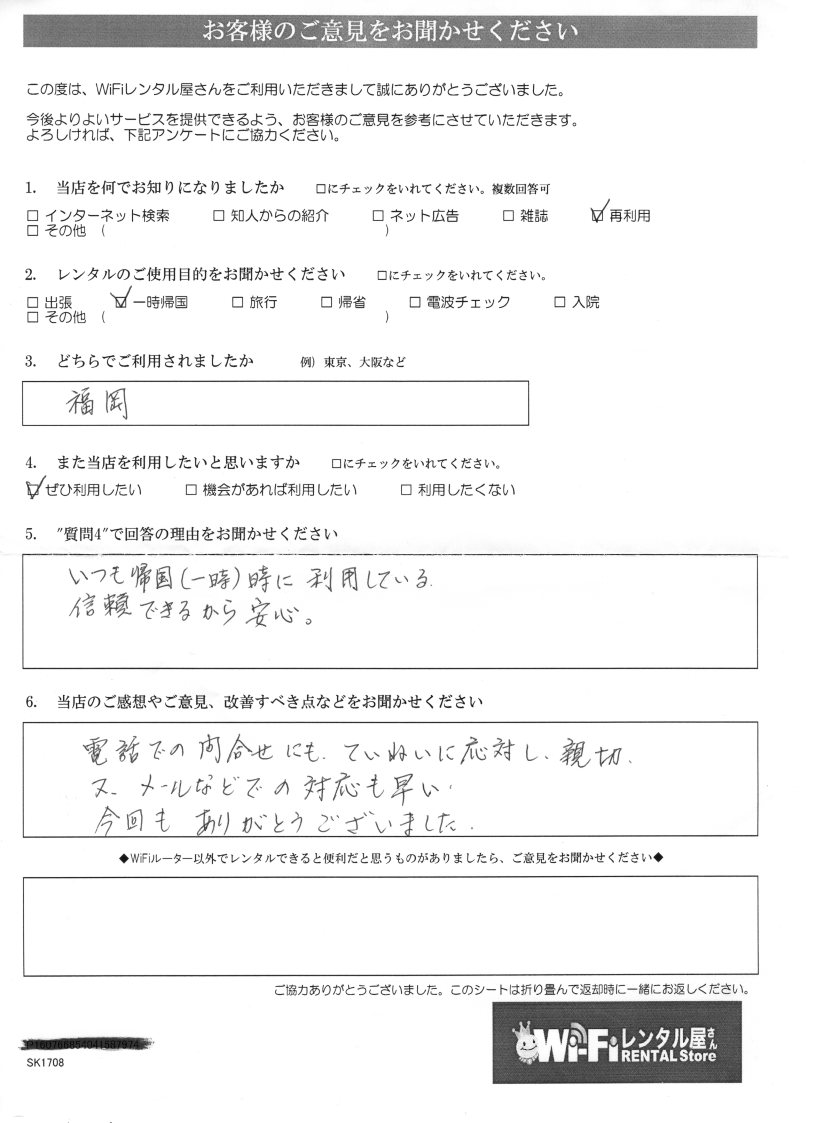 お客様のご意見をお聞かせください
この度は、WiFiレンタル屋さんをご利用いただきまして誠にありがとうございました。
今後よりよいサービスを提供できるよう、お客様のご意見を参考にさせていただきます。
よろしければ、下記アンケートにご協力ください。
1. 当店を何でお知りになりましたか □にチェックをいれてください。複数回答可
□ インターネット検索 □ 知人からの紹介 □ ネット広告 □ 雑誌 ☑ 再利用
□ その他 ( )
2. レンタルのご使用目的をお聞かせください □にチェックをいれてください。
□ 出張 ☑ 一時帰国 □ 旅行 □ 帰省 □ 電波チェック □ 入院
□ その他 ( )
3. どちらでご利用されましたか 例) 東京、大阪など
福岡
4. また当店を利用したいと思いますか □にチェックをいれてください。
☑ ぜひ利用したい □ 機会があれば利用したい □ 利用したくない
5. "質問4"で回答の理由をお聞かせください
いつも帰国(一時)時に利用している.
信頼できるから安心。
6. 当店のご感想やご意見、改善すべき点などをお聞かせください
電話での問合せにも、ていねいに応対し、親切.
又、メールなどでの対応も早い.
今回もありがとうございました.
◆WiFiルーター以外でレンタルできると便利だと思うものがありましたら、ご意見をお聞かせください◆
ご協力ありがとうございました。このシートは折り畳んで返却時に一緒にお返しください。
SK1708
Wi-Fiレンタル屋さん
RENTAL Store